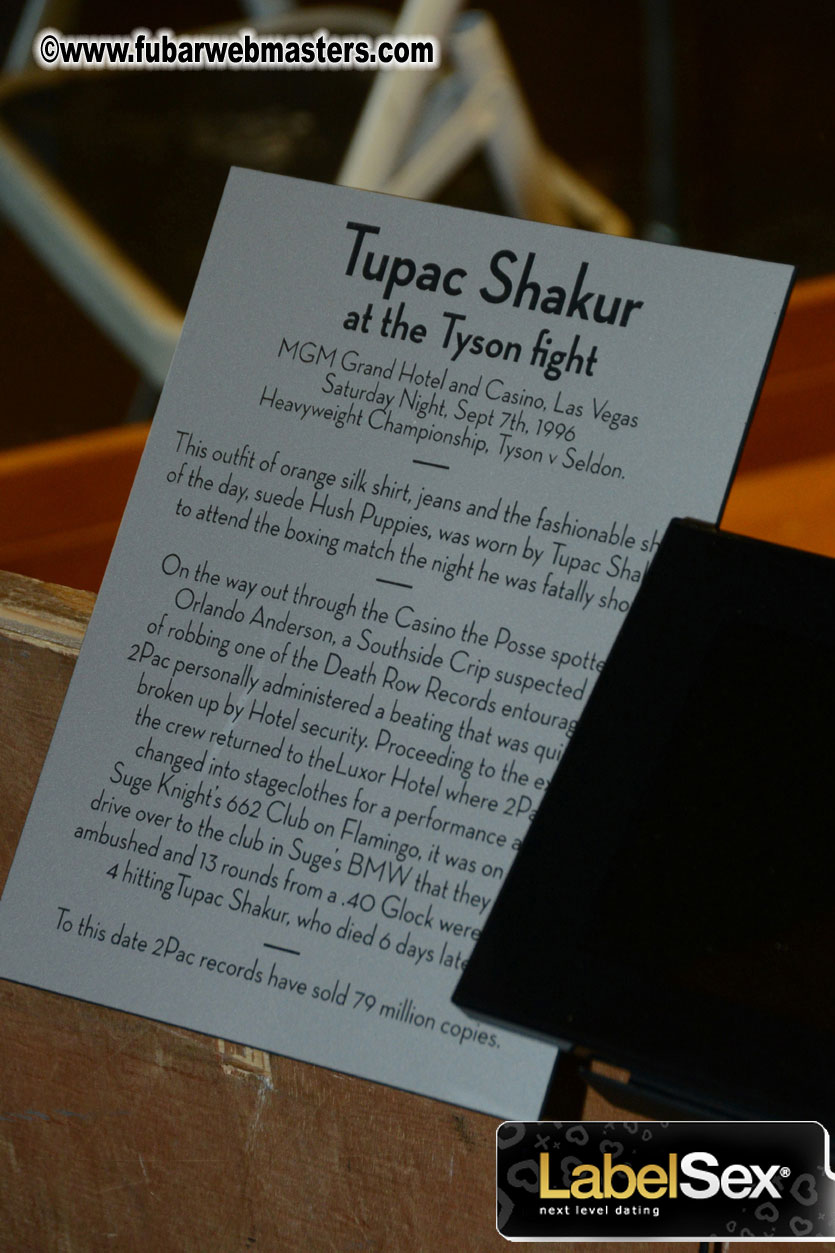 ©www.fubarwebmasters.com
Tupac Shakur
at the Tyson fight
MGM Grand Hotel and Casino, Las Vegas
Saturday Night, Sept 7th, 1996
Heavyweight Championship, Tyson v Seldon.
This outfit of orange silk shirt, jeans and the fashionable
of the day, suede Hush Puppies, was worn by Tupac
to attend the boxing match the night he was fatally
On the way out through the Casino the Posse
Orlando Anderson, a Southside Crip suspected
of robbing one of the Death Row Records
2Pac personally administered a beating that was
broken up by Hotel security. Proceeding to the
the crew returned to theLuxor Hotel where
changed into stageclothes for a performance
Suge Knight's 662 Club on Flamingo, it was on
drive over to the club in Suge's BMW that they
ambushed and 13 rounds from a .40 Glock were
4 hitting Tupac Shakur, who died 6 days
To this date 2Pac records have sold 79 million copies.
LabelSex®
next level dating